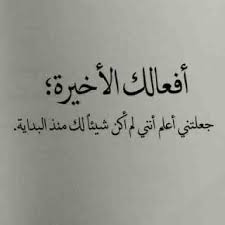 أفعالك الأخيرة؛
جعلتني أعلم أنني لم أكن شيئاً لك منذ البداية.